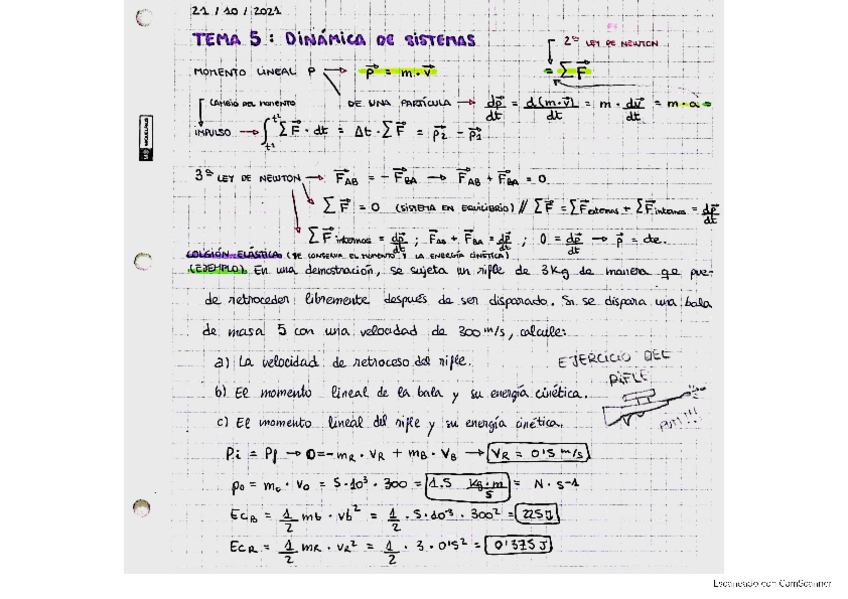 21 / 10 / 2021
TEMA 5: DINÁMICA DE SISTEMAS
2ª LEY DE NEWTON
MOMENTO LINEAL P → p⃗ = m · v⃗
= ΣF⃗
CAMBIO DEL MOMENTO
DE UNA PARTÍCULA → dp⃗/dt = d(m·v⃗)/dt = m · dv⃗/dt = m · a =
IMPULSO → ∫t1^t2 ΣF⃗ · dt = Δt · ΣF⃗ = p⃗2 − p⃗1
3ª LEY DE NEWTON → F⃗AB = − F⃗BA → F⃗AB + F⃗BA = 0
ΣF⃗ = 0 (SISTEMA EN EQUILIBRIO) // ΣF⃗ = ΣF⃗externas + ΣF⃗internas = dp⃗/dt
ΣF⃗internas = dp⃗/dt ; F⃗AB + F⃗BA = dp⃗/dt ; 0 = dp⃗/dt → p⃗ = cte.
COLISIÓN ELÁSTICA (SE CONSERVA EL MOMENTO Y LA ENERGÍA CINÉTICA)
(EJEMPLO) En una demostración, se sujeta un rifle de 3Kg de manera qe pue-
de retroceder libremente después de ser disparado. Si se dispara una bala
de masa 5 con una velocidad de 300 m/s, calcule:
a) La velocidad de retroceso del rifle.
EJERCICIO DEL
RIFLE
b) El momento lineal de la bala y su energía cinética.
c) El momento lineal del rifle y su energía cinética.
PUM!!!
Pi = Pf → 0 = −mR · VR + mB · VB → VR = 0'5 m/s
= 5·10³ · 300 = 1.5 kg·m/s = N · s-1
EcB = 1/2 mb · vb² = 1/2 · 5·10³ · 300² = 225J
EcR = 1/2 mR · VR² = 1/2 · 3 · 0'5² = 0'375 J
Escaneado con CamScanner